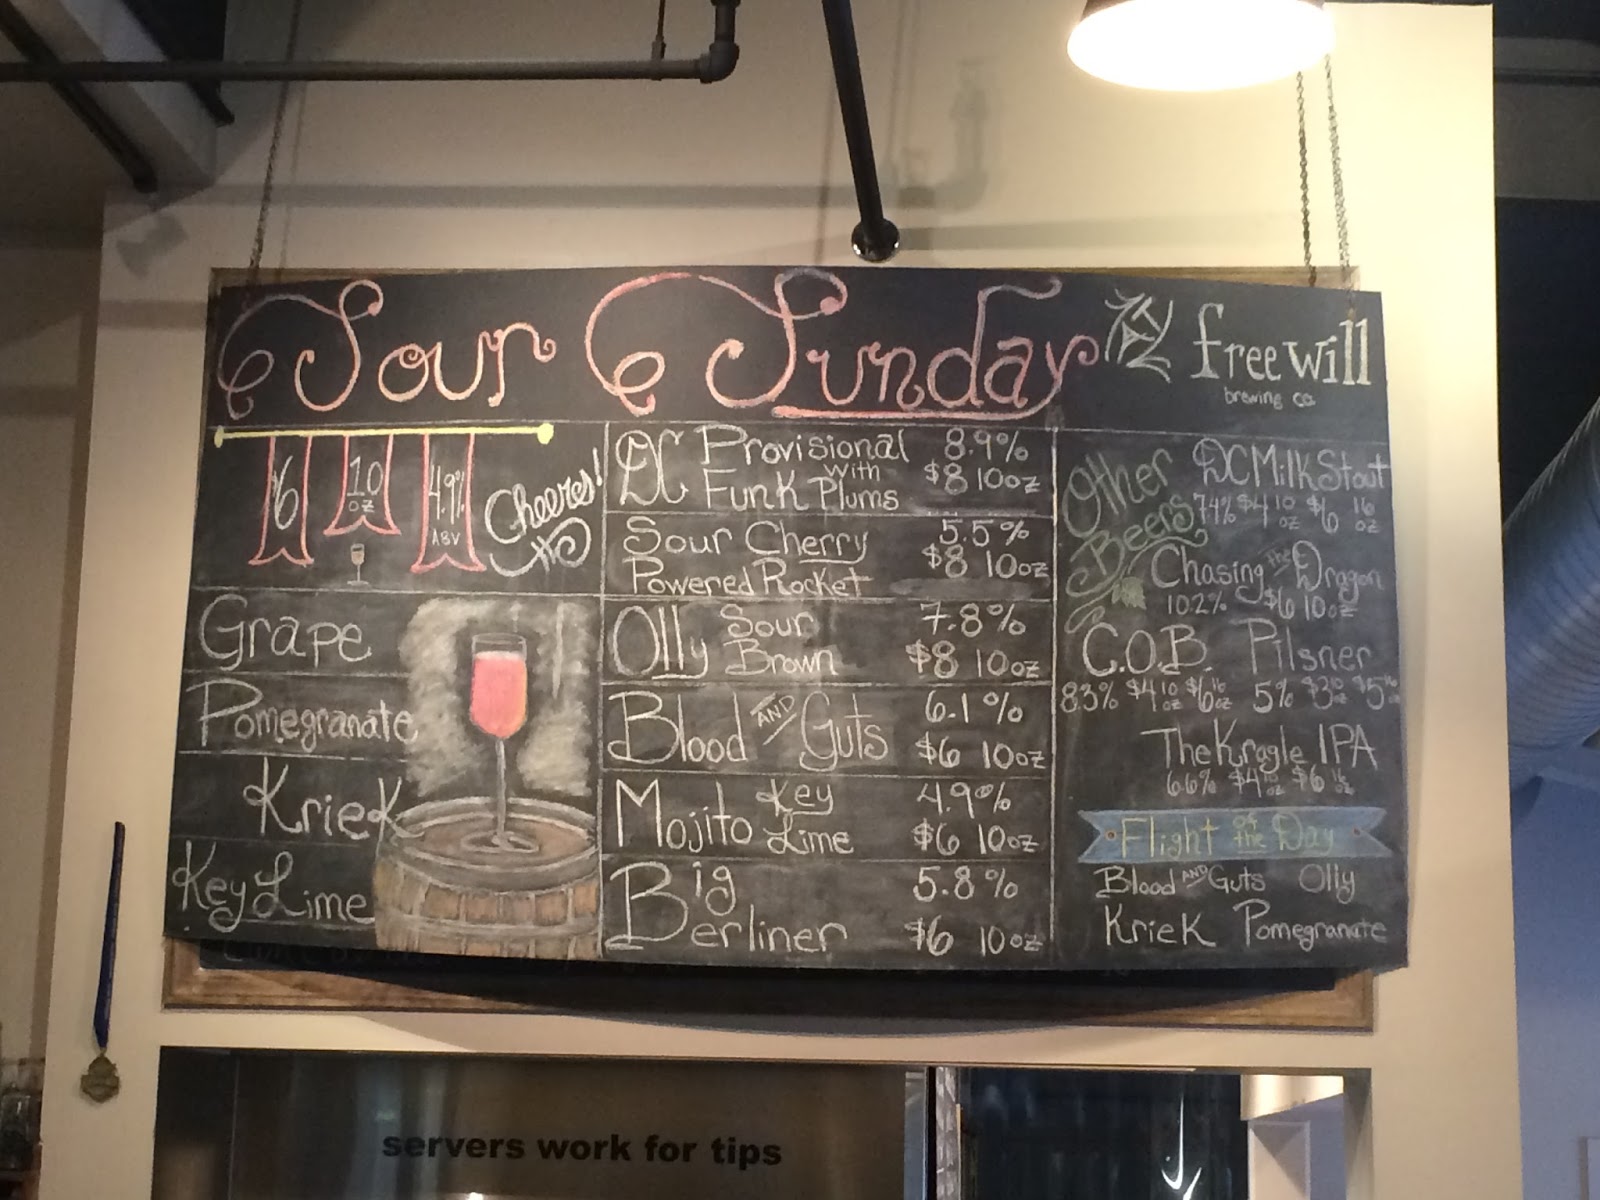 Sour Sunday
free will
brewing co.
$6
10
oz
4.9%
ABV
Cheers!
Grape
Pomegranate
Kriek
Key Lime
DC Provisional
with
Funk Plums
8.9%
$8 10oz
Sour Cherry
Powered Rocket
5.5%
$8 10oz
Olly Sour
Brown
7.8%
$8 10oz
Blood AND Guts
6.1%
$6 10oz
Mojito Key
Lime
4.9%
$6 10oz
Big
Berliner
5.8%
$6 10oz
Other
Beers
DC Milk Stout
7.4% $4 10 oz $6 16 oz
Chasing the Dragon
10.2% $6 10oz
C.O.B. Pilsner
8.3% $4 10 oz $6 16 oz 5% $3 10 oz $5 16 oz
The Kragle IPA
6.6% $4 10 oz $6 16 oz
Flight of the Day
Blood AND Guts Olly
Kriek Pomegranate
servers work for tips